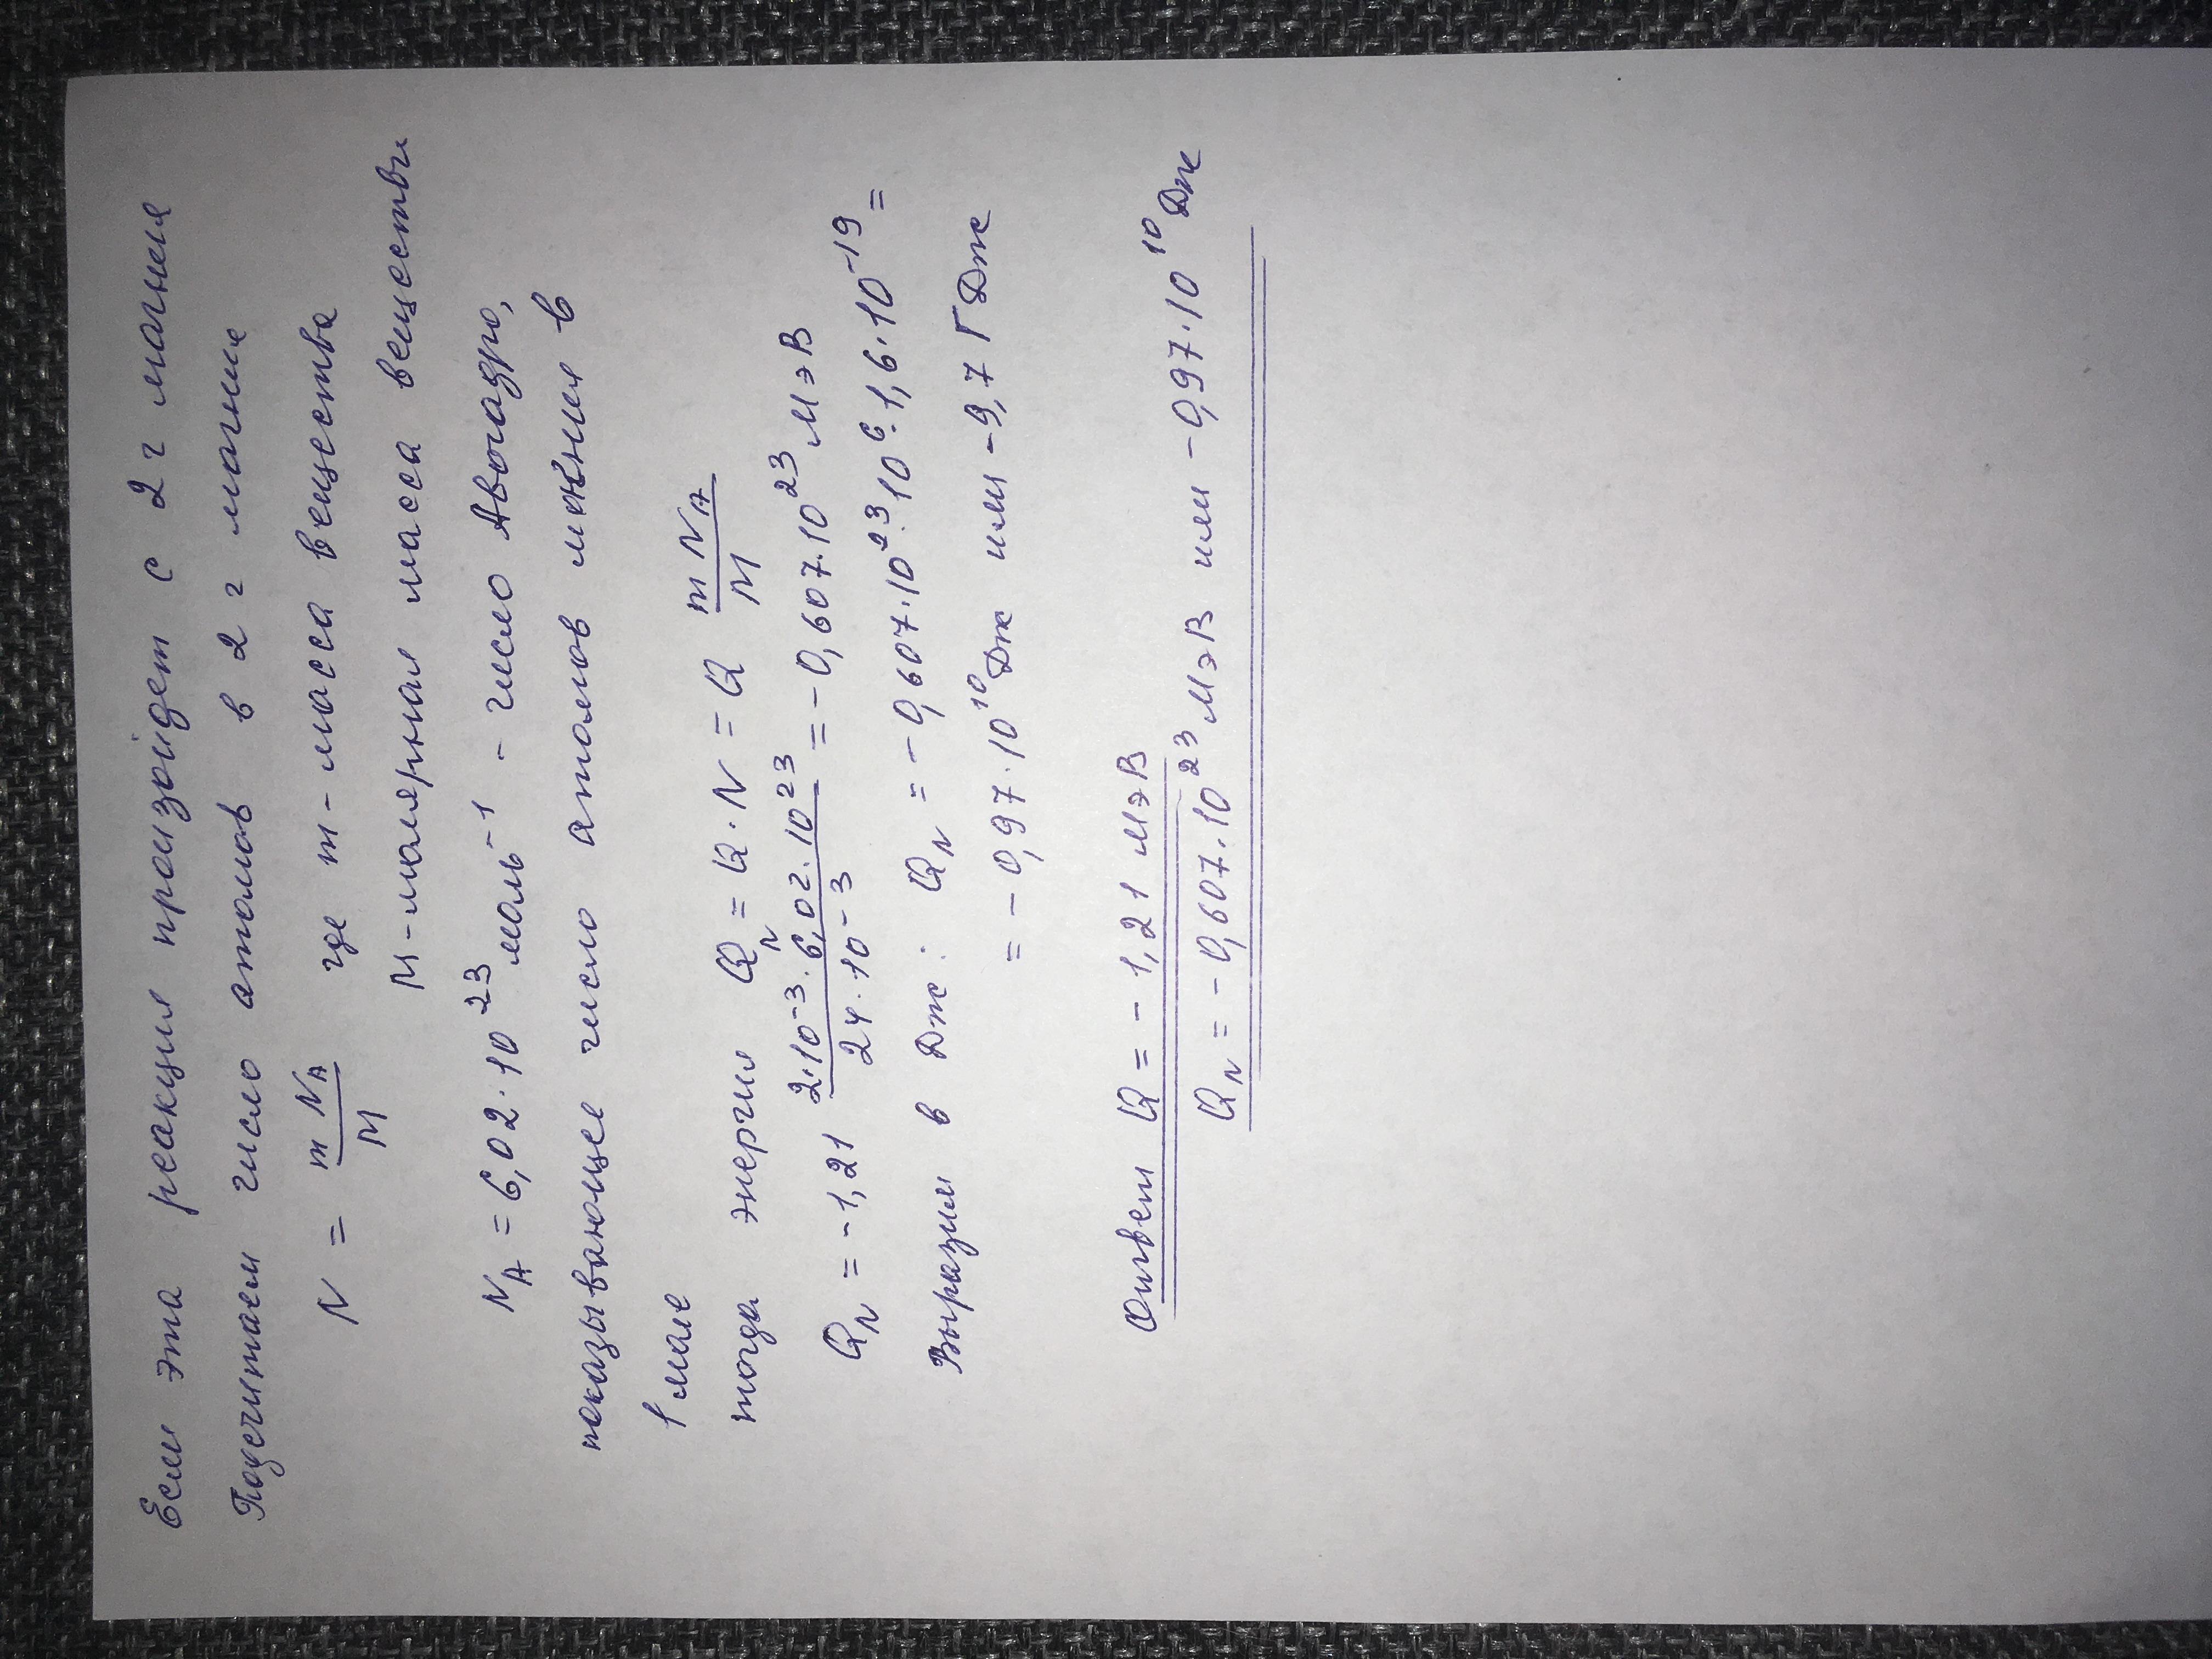 Если эта реакция произойдет с 2 г магния
Подсчитаем число атомов в 2 г магние
N = m N_A / M где m - масса вещества
M - молярная масса веществы
N_A = 6,02 · 10^23 моль^-1 - число Авогадро,
показывающее число атомов магния в
1 моле
тогда энергия Q_N = Q · N = Q m N_A / M
Q_N = -1,21 2·10^-3 · 6,02 · 10^23 / 24 · 10^-3 = -0,607·10^23 МэВ
Выразим в Дж: Q_N = -0,607·10^23·10^6·1,6·10^-19 =
= -0,97·10^10 Дж или -9,7 ГДж
Ответ Q = -1,21 МэВ
Q_N = -0,607·10^23 МэВ или -0,97·10^10 Дж